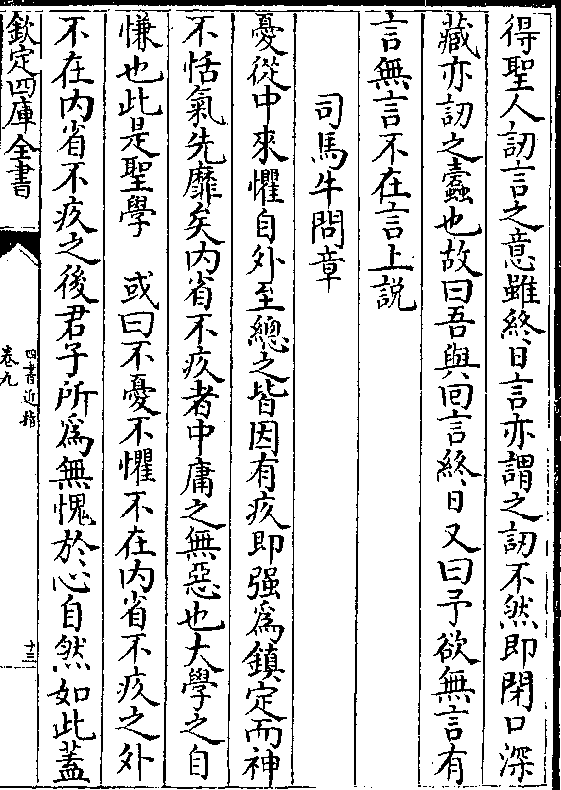 得聖人訒言之意雖終日言亦謂之訒不然即閉口深
藏亦訒之蠹也故曰吾與囘言終日又曰予欲無言有
言無言不在言上説
司馬牛問章
憂從中來懼自外至總之皆因有疚即强為鎮定而神
不恬氣先靡矣内省不疚者中庸之無惡也大學之自
慊也此是聖學　或曰不憂不懼不在内省不疚之外
不在内省不疚之後君子所為無愧於心自然如此蓋
欽定四庫全書
四書近指
卷九
十三